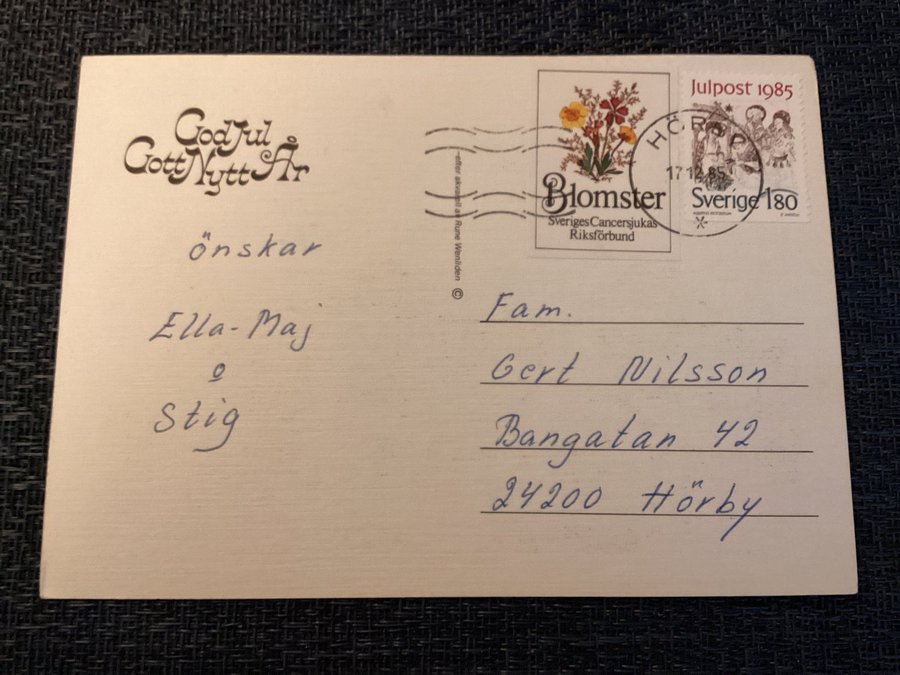 God Jul
Gott Nytt År
önskar
Ella-Maj
o
Stig
efter akvarell av Rune Wenliden ©
Blomster
Sveriges Cancersjukas
Riksförbund
Julpost 1985
Sverige 180
HÖRBY
17 12 85
Fam.
Gert Nilsson
Bangatan 42
24200 Hörby